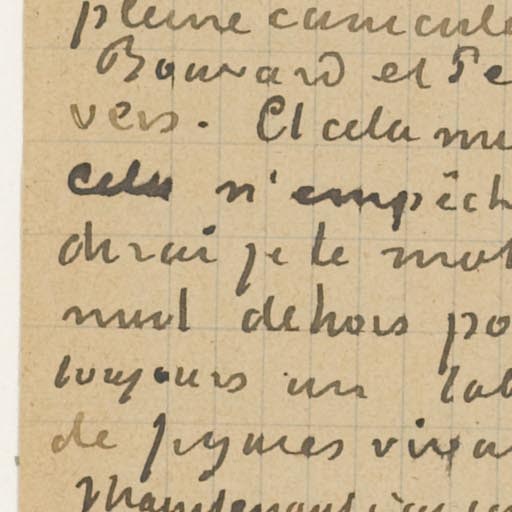 pleine canicule
Bouvard et Pé
vers. Et cela
cela n'empêch
dirai je le mot
nuit dehors po
toujours un tab
de figures viva
Maintenant